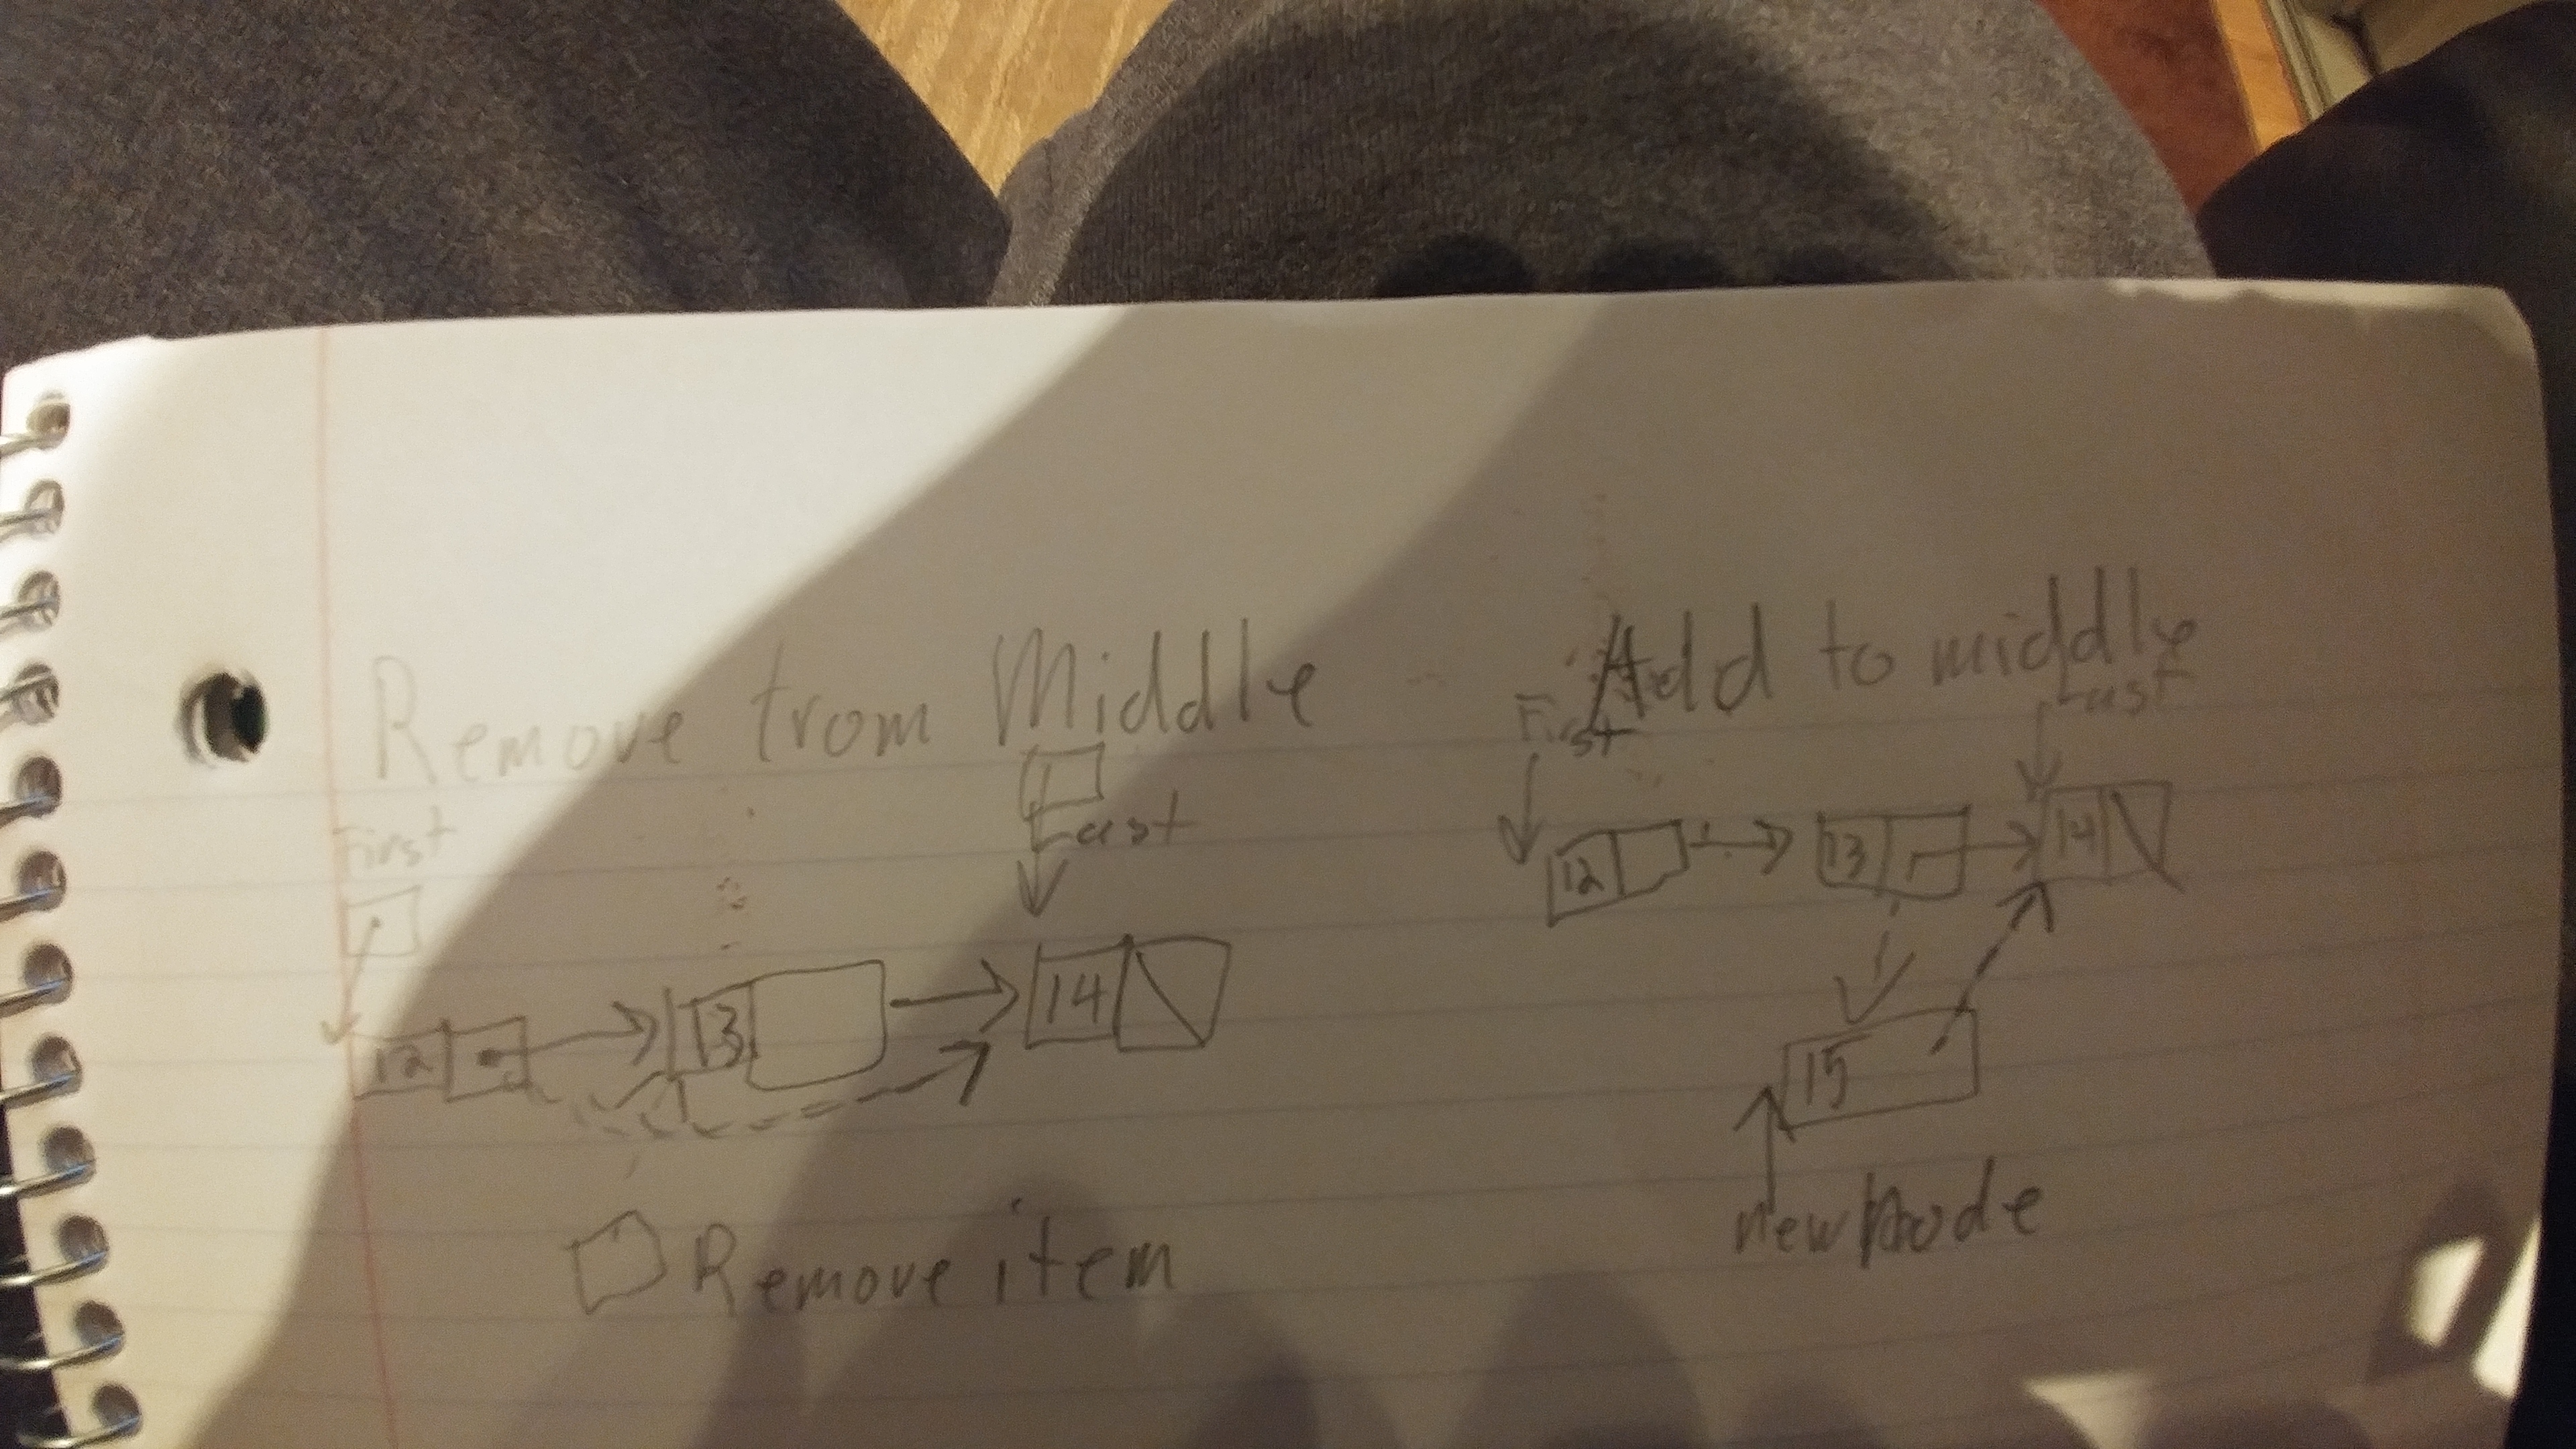 Remove from Middle
First
Last
12 13 14
Remove item
Add to middle
First
Last
12 13 14
15
newNode